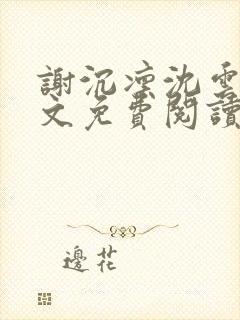 謝沉凛沈雲
文免費閱讀
邊花